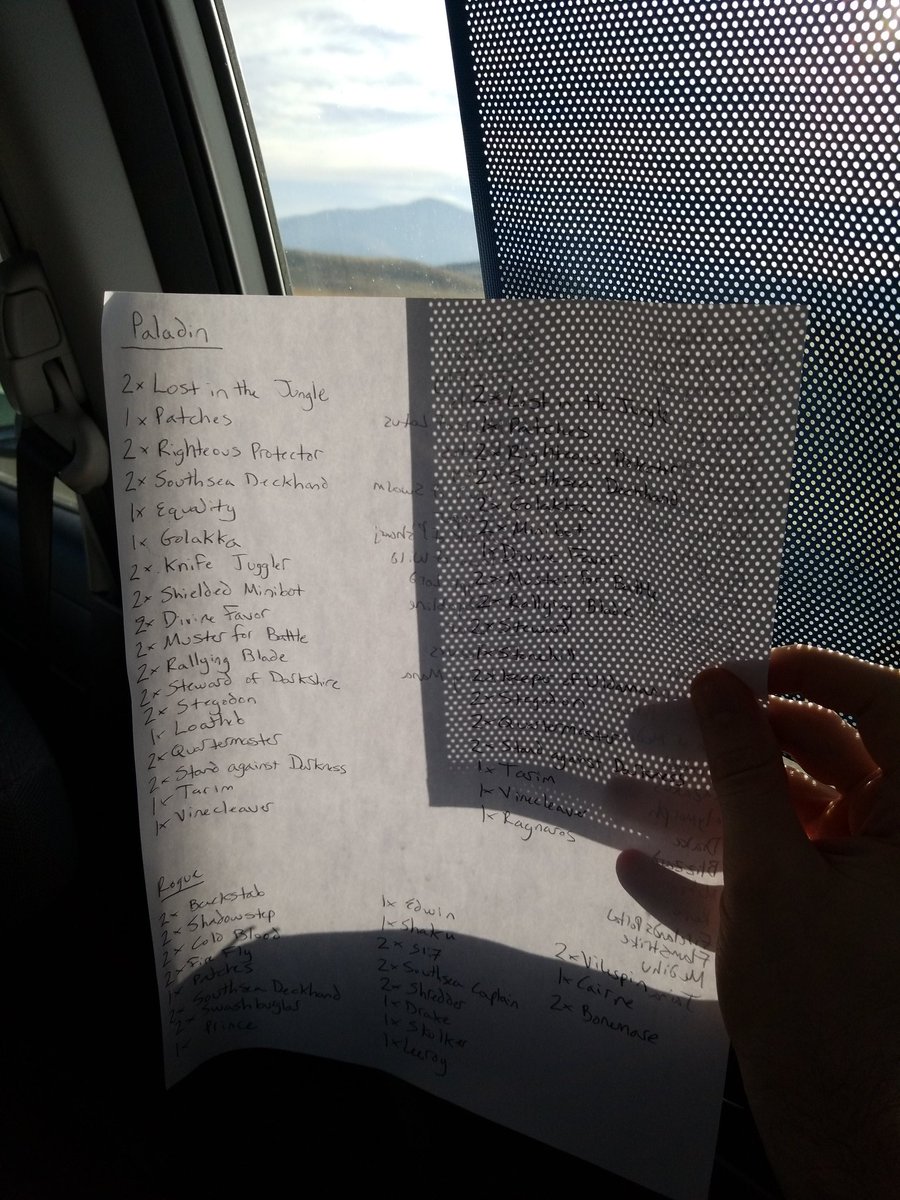 Paladin
2x Lost in the Jungle
1x Patches
2x Righteous Protector
2x Southsea Deckhand
1x Equality
1x Golakka
2x Knife Juggler
2x Shielded Minibot
2x Divine Favor
2x Muster for Battle
2x Rallying Blade
2x Steward of Darkshire
2x Stegodon
1x Loatheb
2x Quartermaster
2x Stand against Darkness
1x Tarim
1x Vinecleaver
2x Lost in the Jungle
1x Patches
2x Righteous Protector
2x Southsea Deckhand
2x Golakka
2x Minibot
1x Divine Favor
2x Muster for Battle
2x Rallying Blade
2x Steward
1x
2x Keeper of Uldaman
2x Stegodon
2x Quartermaster
2x Stand against Darkness
1x Tarim
1x Vinecleaver
1x Ragnaros
Rogue
2x Backstab
2x Shadowstep
2x Cold Blood
2x Fire Fly
1x Patches
2x Southsea Deckhand
2x Swashburglar
1x Prince
1x Edwin
1x Shaku
2x SI7
2x Southsea Captain
2x Shredder
1x Drake
1x Skulker
1x Leeroy
2x Vilespin
1x Cairne
2x Bonemare